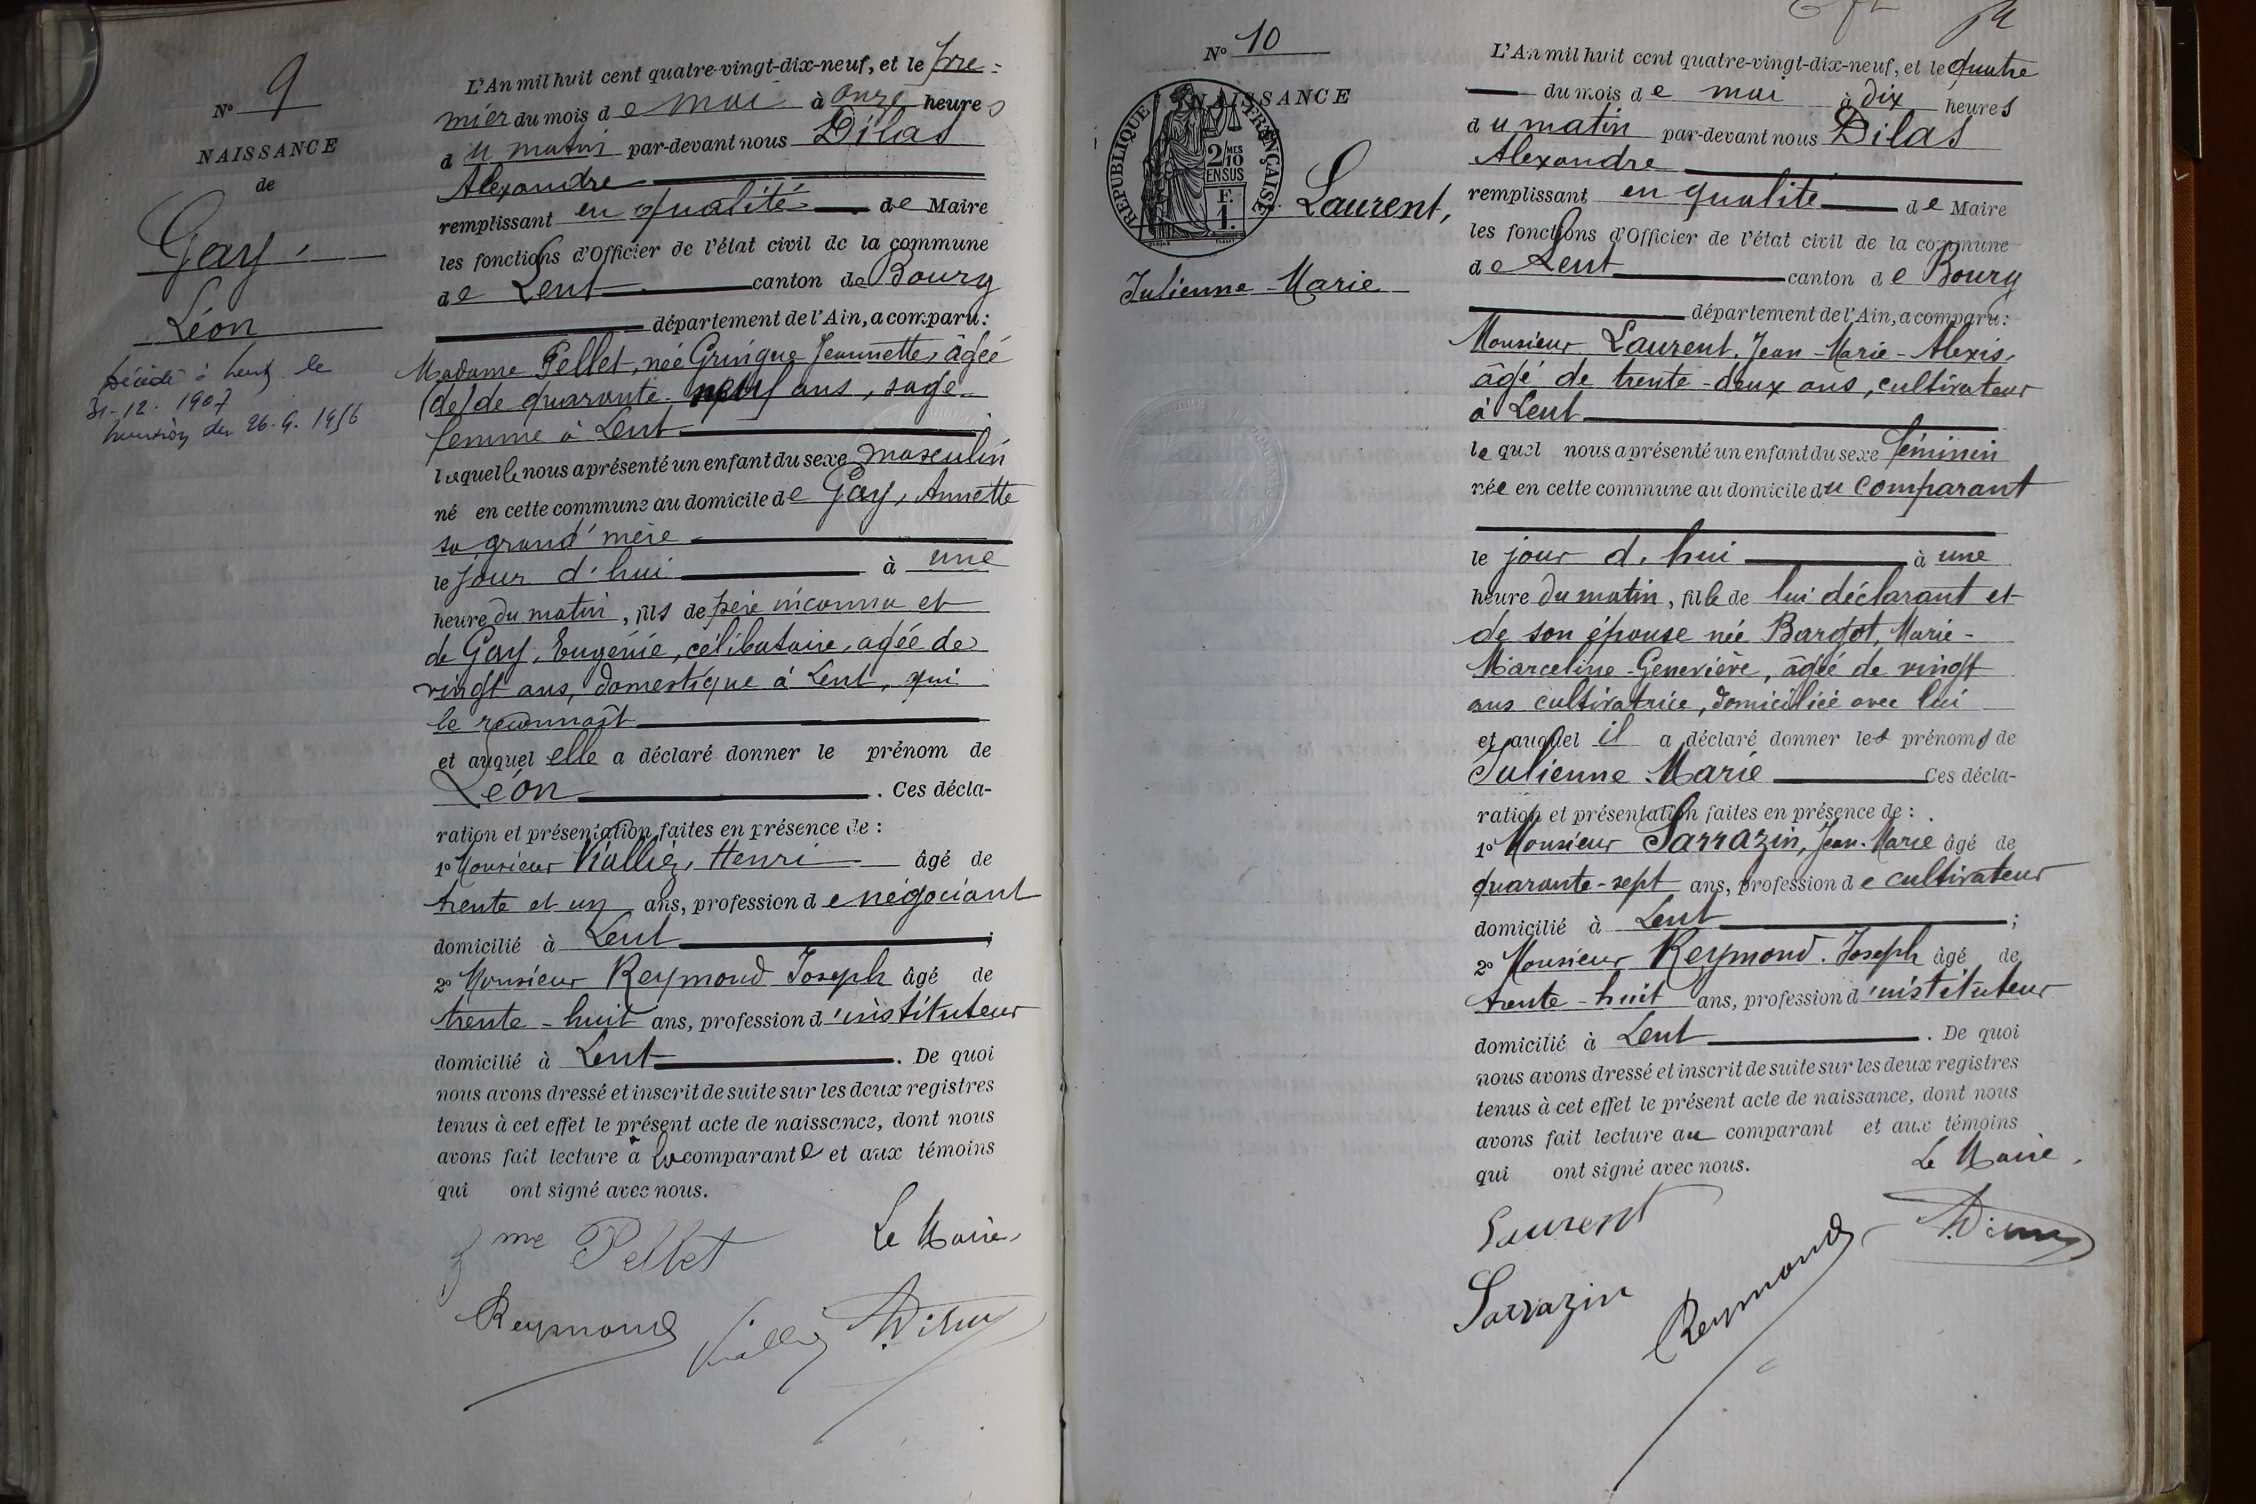 N° 9
NAISSANCE
de
Gay,
Léon
Décédé à Lent le
31-12-1907
mention du 26.9.1956
L'An mil huit cent quatre-vingt-dix-neuf, et le pre-
mier du mois de mai à onze heures
du matin par-devant nous Dilas
Alexandre
remplissant en qualité de Maire
les fonctions d'Officier de l'état civil de la commune
de Lent canton de Bourg
département de l'Ain, a comparu:
Madame Pellet, née Gringue Jeannette, âgée
(de) de quarante-neuf ans, sage-
femme à Lent
laquelle nous a présenté un enfant du sexe masculin
né en cette commune au domicile de Gay, Annette
sa grand'mère
le jour d'hui à une
heure du matin, fils de père inconnu et
de Gay, Eugénie, célibataire, agée de
vingt ans, domestique à Lent, qui
le reconnaît
et auquel elle a déclaré donner le prénom de
Léon . Ces décla-
ration et présentation faites en présence de :
1° Monsieur Vialliez, Henri âgé de
trente et un ans, profession de négociant
domicilié à Lent ;
2° Monsieur Reymond Joseph âgé de
trente-huit ans, profession d'instituteur
domicilié à Lent . De quoi
nous avons dressé et inscrit de suite sur les deux registres
tenus à cet effet le présent acte de naissance, dont nous
avons fait lecture à la comparante et aux témoins
qui ont signé avec nous.
Le Maire,
fme Pellet
Reymond Vialliez A. Dilas
N° 10
NAISSANCE
REPUBLIQUE FRANÇAISE
2/10 MES
EN SUS
F.
1.
Laurent,
Julienne-Marie
L'An mil huit cent quatre-vingt-dix-neuf, et le quatre
du mois de mai à dix heures
du matin par-devant nous Dilas
Alexandre
remplissant en qualité de Maire
les fonctions d'Officier de l'état civil de la commune
de Lent canton de Bourg
département de l'Ain, a comparu:
Monsieur Laurent, Jean-Marie-Alexis,
âgé de trente-deux ans, cultivateur
à Lent
lequel nous a présenté un enfant du sexe féminin
née en cette commune au domicile du comparant
le jour d'hui à une
heure du matin, fille de lui déclarant et
de son épouse née Bargot, Marie-
Marceline-Geneviève, âgée de vingt
ans cultivatrice, domiciliée avec lui
et auquel il a déclaré donner les prénoms de
Julienne Marie Ces décla-
ration et présentation faites en présence de :
1° Monsieur Sarrazin, Jean-Marie âgé de
quarante-sept ans, profession de cultivateur
domicilié à Lent ;
2° Monsieur Reymond Joseph âgé de
trente-huit ans, profession d'instituteur
domicilié à Lent . De quoi
nous avons dressé et inscrit de suite sur les deux registres
tenus à cet effet le présent acte de naissance, dont nous
avons fait lecture au comparant et aux témoins
qui ont signé avec nous.
Le Maire,
Laurent A. Dilas
Sarrazin Reymond